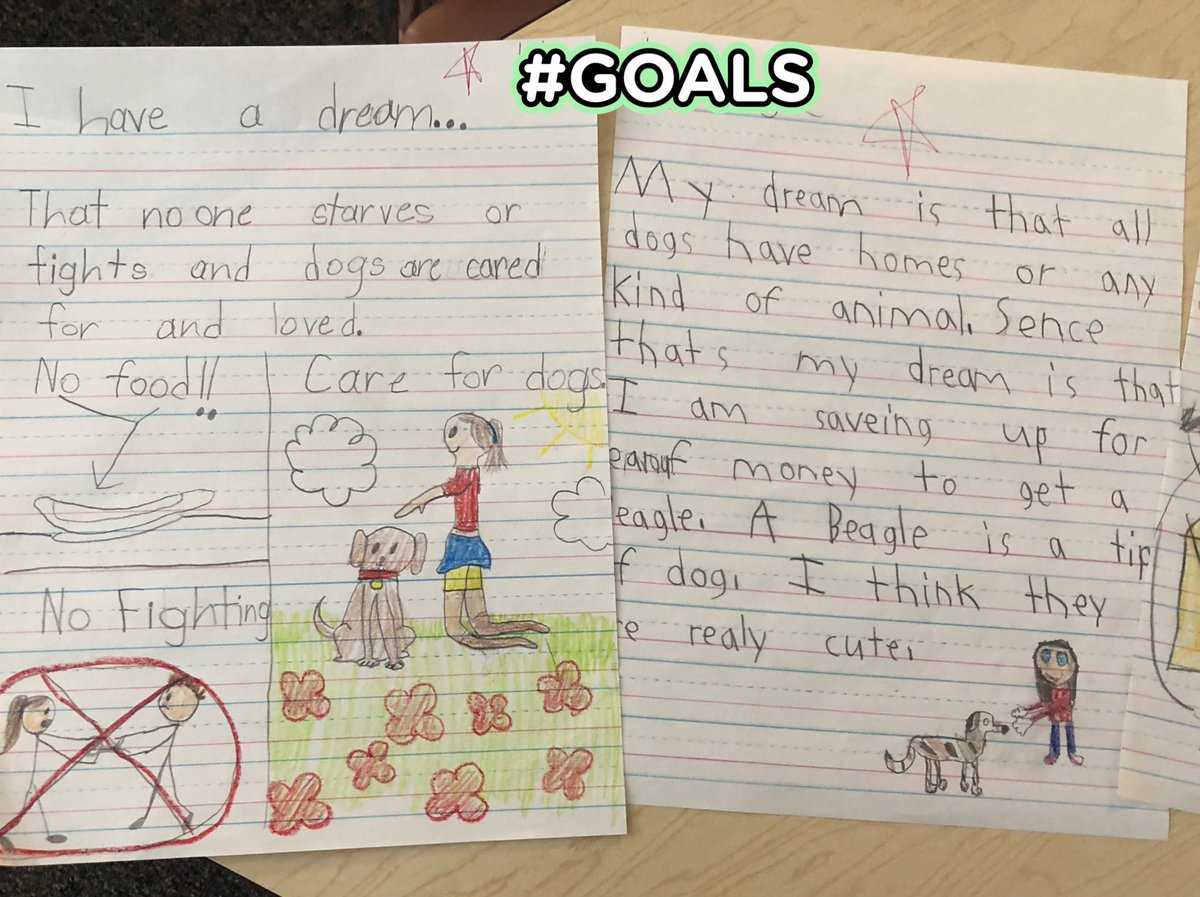 #GOALS
I have a dream...
That no one starves or
fights and dogs are cared
for and loved.
No food!!
Care for dogs.
No Fighting
My dream is that all
dogs have homes or any
kind of animal. Sence
thats my dream is that
I am saveing up for
money to get a
eagle. A Beagle is a tip
f dog. I think they
e realy cute.